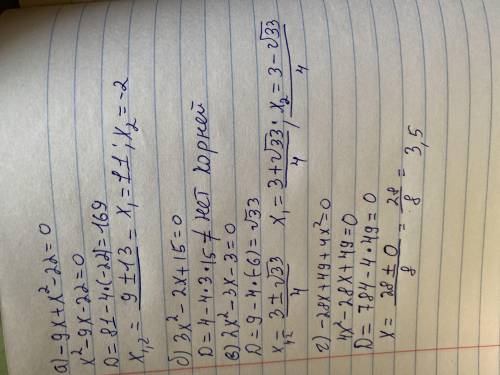 а) -9x+x²-22=0
x²-9x-22=0
D=81-4·(-22)=169
x₁,₂= (9±13)/2 = x₁=11; x₂=-2
б) 3x²-2x+15=0
D=4-4·3·15≠ нет корней
в) 2x²-3x-3=0
D=9-4·(-6)=√33
x₁,₂= (3±√33)/4 x₁= (3+√33)/4; x₂= (3-√33)/4
г) -28x+49+4x²=0
4x²-28x+49=0
D=784-4·4·49=0
x= (28±0)/8 = 28/8 = 3,5